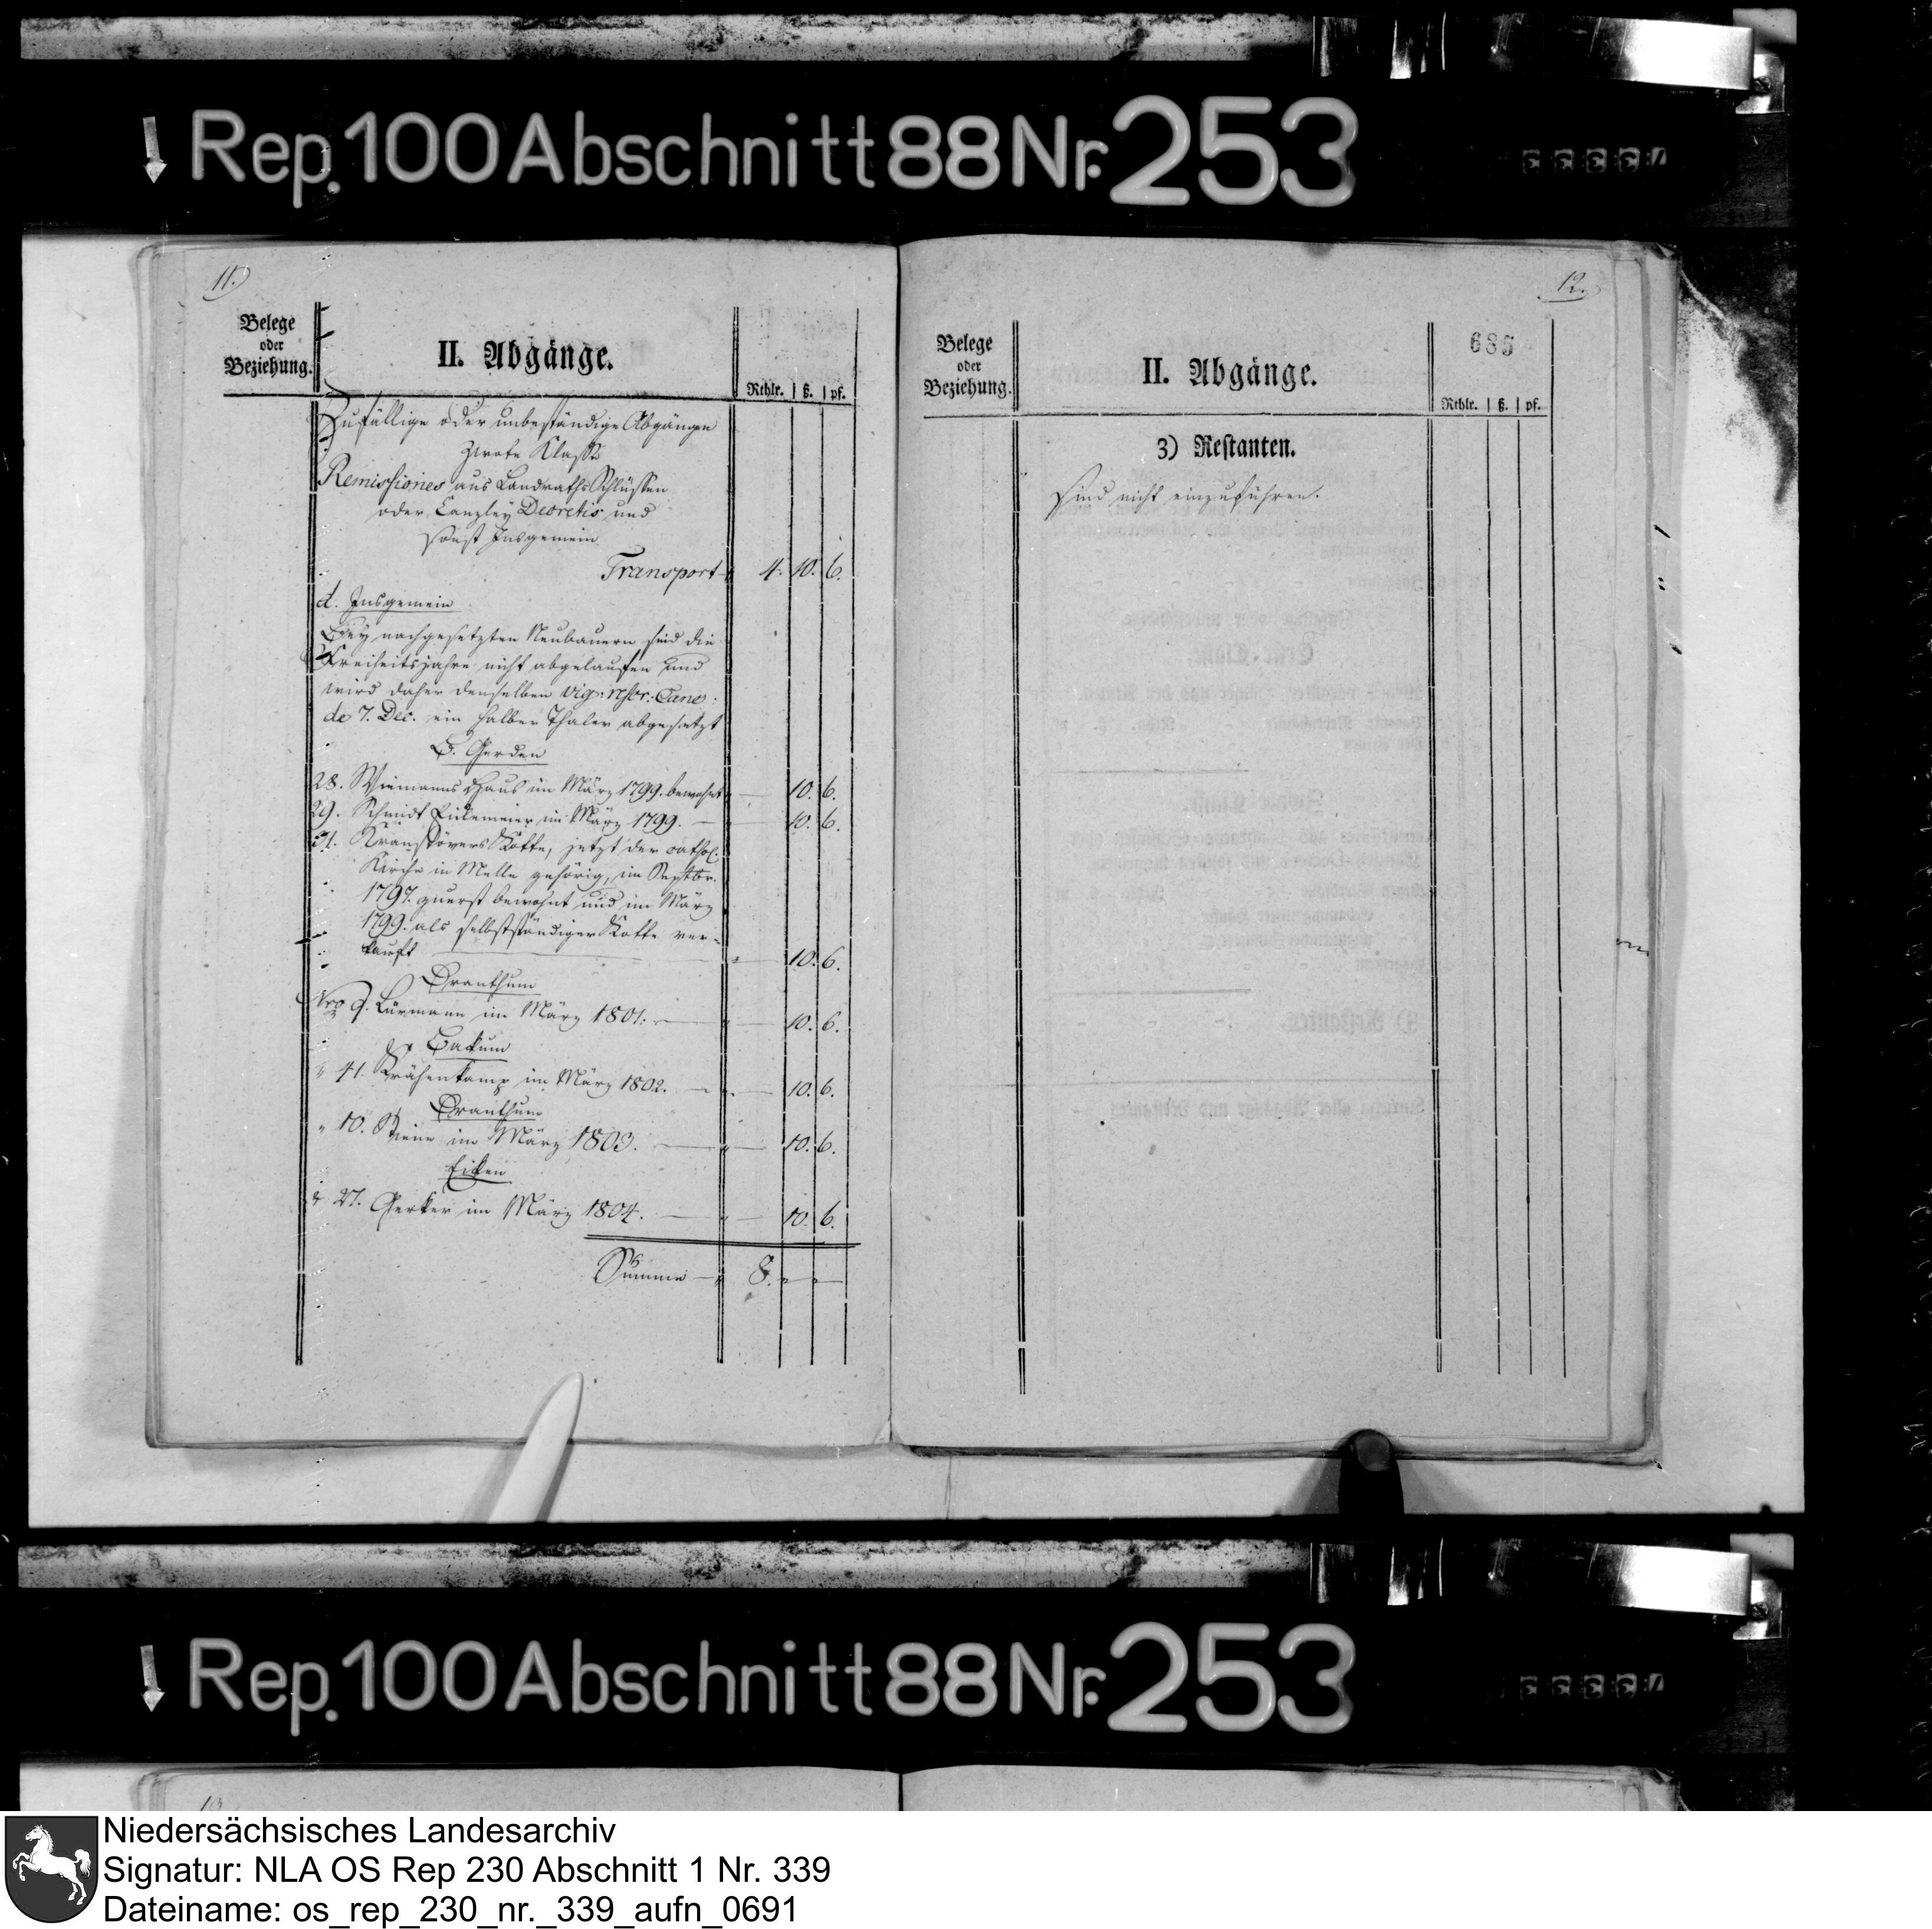 Rep. 100 Abschnitt 88 Nr. 253
11.)
Belege
oder
Beziehung.
II. Abgänge.
Rthlr. | ß. | pf.
Zufällige oder unbeständige Abgängen
zwote Klasse
Remissiones aus Landraths Schlüssen
oder Canzley Decretis und
sonst Insgemein
Transport 4. 10. 6.
d. Insgemein
Bey nachgesetzten Neubauern sind die
Freiheitsjahre nicht abgelaufen und
wird daher denselben vig. rescr. Canc:
de 7. Dec. ein halber Thaler abgesetzt
B. Gerden
28. Wiemanns Haus im März 1799. bewohnt 10. 6.
29. Schmidt im März 1799. 10. 6.
31. Kotte, jetzt der cathol.
Kirche in Melle gehörig, im Septbr.
1797. zuerst bewohnt und im März
1799. als selbstständiger Kotte ver-
kauft 10. 6.
Drantum
Nro 9. Lürmann im März 1801. 10. 6.
Bakum
" 41. Krähenkamp im März 1802. 10. 6.
Drantum
" 10. im März 1803. 10. 6.
Eicken
" 27. Gerker im März 1804. 10. 6.
Summe 8. " "
12.
685
Belege
oder
Beziehung.
II. Abgänge.
Rthlr. | ß. | pf.
3) Restanten.
Sind nicht einzuführen.
Rep. 100 Abschnitt 88 Nr. 253
Niedersächsisches Landesarchiv
Signatur: NLA OS Rep 230 Abschnitt 1 Nr. 339
Dateiname: os_rep_230_nr._339_aufn_0691